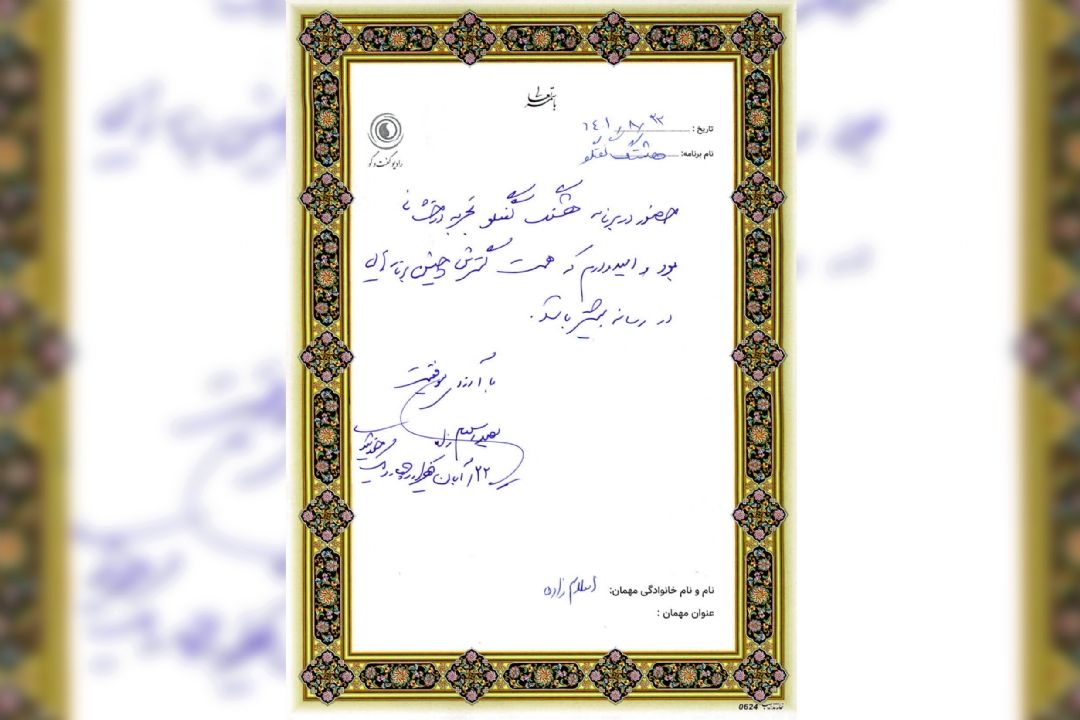 باسمه تعالی
تاریخ :
نام برنامه: هشتگ گفتگو
رادیو گفت و گو
حضور در برنامه هشتگ گفتگو تجربه درخشانی
بود و امیدوارم که همت گسترش چنین برنامه هایی
در رسانه بیشتر باشد.
با آرزوی موفقیت
اسلام زاده
۲۲ آبان یکهزار و چهارصد و
نام و نام خانوادگی مهمان: اسلام زاده
عنوان مهمان :
0624